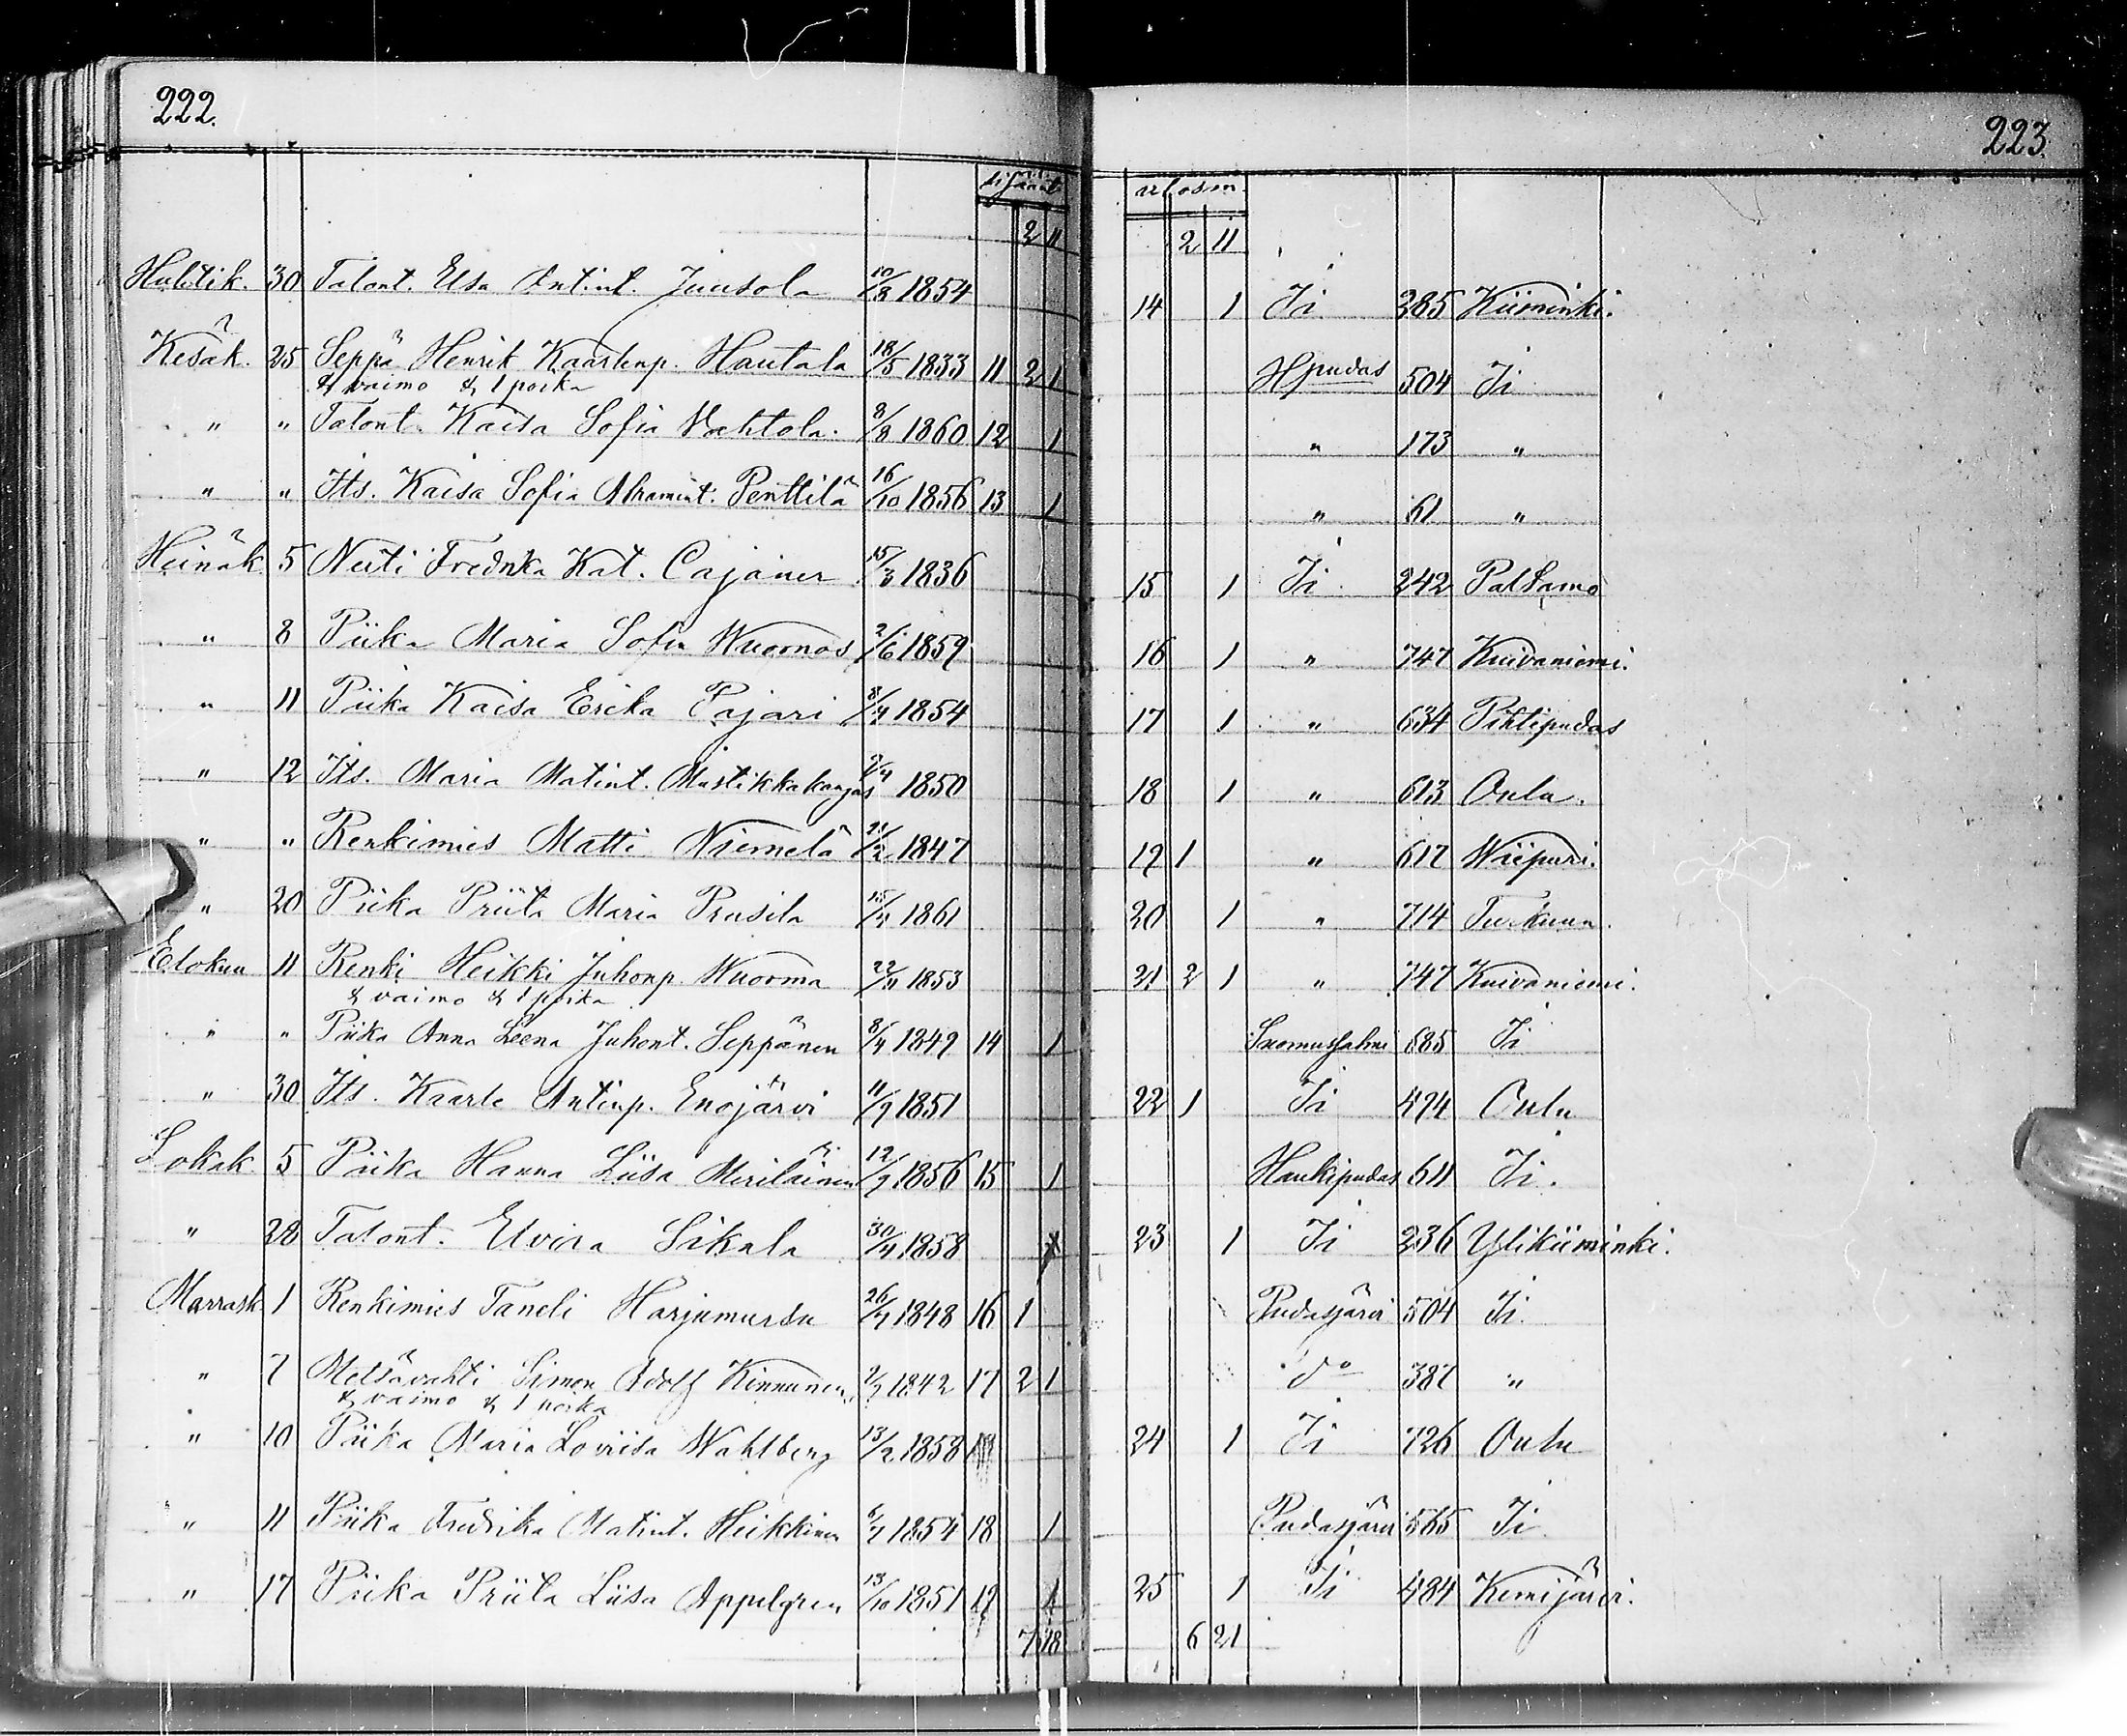 222.
sisäänt.
2 11
Huhtik. 30 Talont. Elsa Antint. Juusola 10/8 1854
Kesäk. 25 Seppä Henrik Kaarlenp. Hautala 18/5 1833 11 2 1
& vaimo & 1 poika
" " Talont. Kaisa Sofia Vahtola. 8/8 1860 12 1
" " Its. Kaisa Sofia Abramint. Penttilä 16/10 1856 13 1
Heinäk. 5 Neiti Fredrika Kat. Cajaner 15/3 1836
" 8 Piika Maria Sofia Wuornos 2/6 1859
" 11 Piika Kaisa Erika Pajari 8/4 1854
" 12 Its. Maria Matint. Mustikkakangas 1850
" " Renkimies Matti Niemelä 1847
" 20 Piika Priita Maria Prusila 1861
Elokuu 11 Renki Heikki Juhonp. Wuorma 1853
& vaimo & 1 poika
" " Piika Anna Leena Juhont. Seppänen 8/4 1849 14 1
" 30 Its. Kaarle Antinp. Enojärvi 11/9 1851
Lokak. 5 Piika Hanna Liisa Meriläinen 12/9 1856 15 1
" 28 Talont. Elvira Sikala 1858
Marrask. 1 Renkimies Taneli Harjumursu 1848 16 1
" 7 Metsävahti Simon Adolf Kinnunen 1842 17 2 1
& vaimo & 1 poika
" 10 Piika Maria Loviisa Wahlberg 13/2 1858
" 11 Piika Fredrika Matint. Heikkinen 1854 18 1
" 17 Piika Priita Liisa Appelgren 13/10 1851
7 18
223.
ulosm.
2 11
14 1 Ii 285 Kiiminki.
Hpudas 504 Ii
" 173 "
" 61 "
15 1 Ii 242 Paldamo
16 1 " 747 Kuivaniemi.
17 1 " 634 Pihtipudas
18 1 " 613 Oulu.
19 1 " 617 Wiipuri.
20 1 " 714 Turkuun.
21 2 1 " 747 Kuivaniemi.
Suomussalmi 685 Ii
22 1 Ii 494 Oulu
Haukipudas 611 Ii.
23 1 Ii 236 Ylikiiminki.
Pudasjärvi 504 Ii.
do 387 "
24 1 Ii 726 Oulu
Pudasjärvi 565 Ii.
25 1 Ii 484 Kemijärvi.
6 21